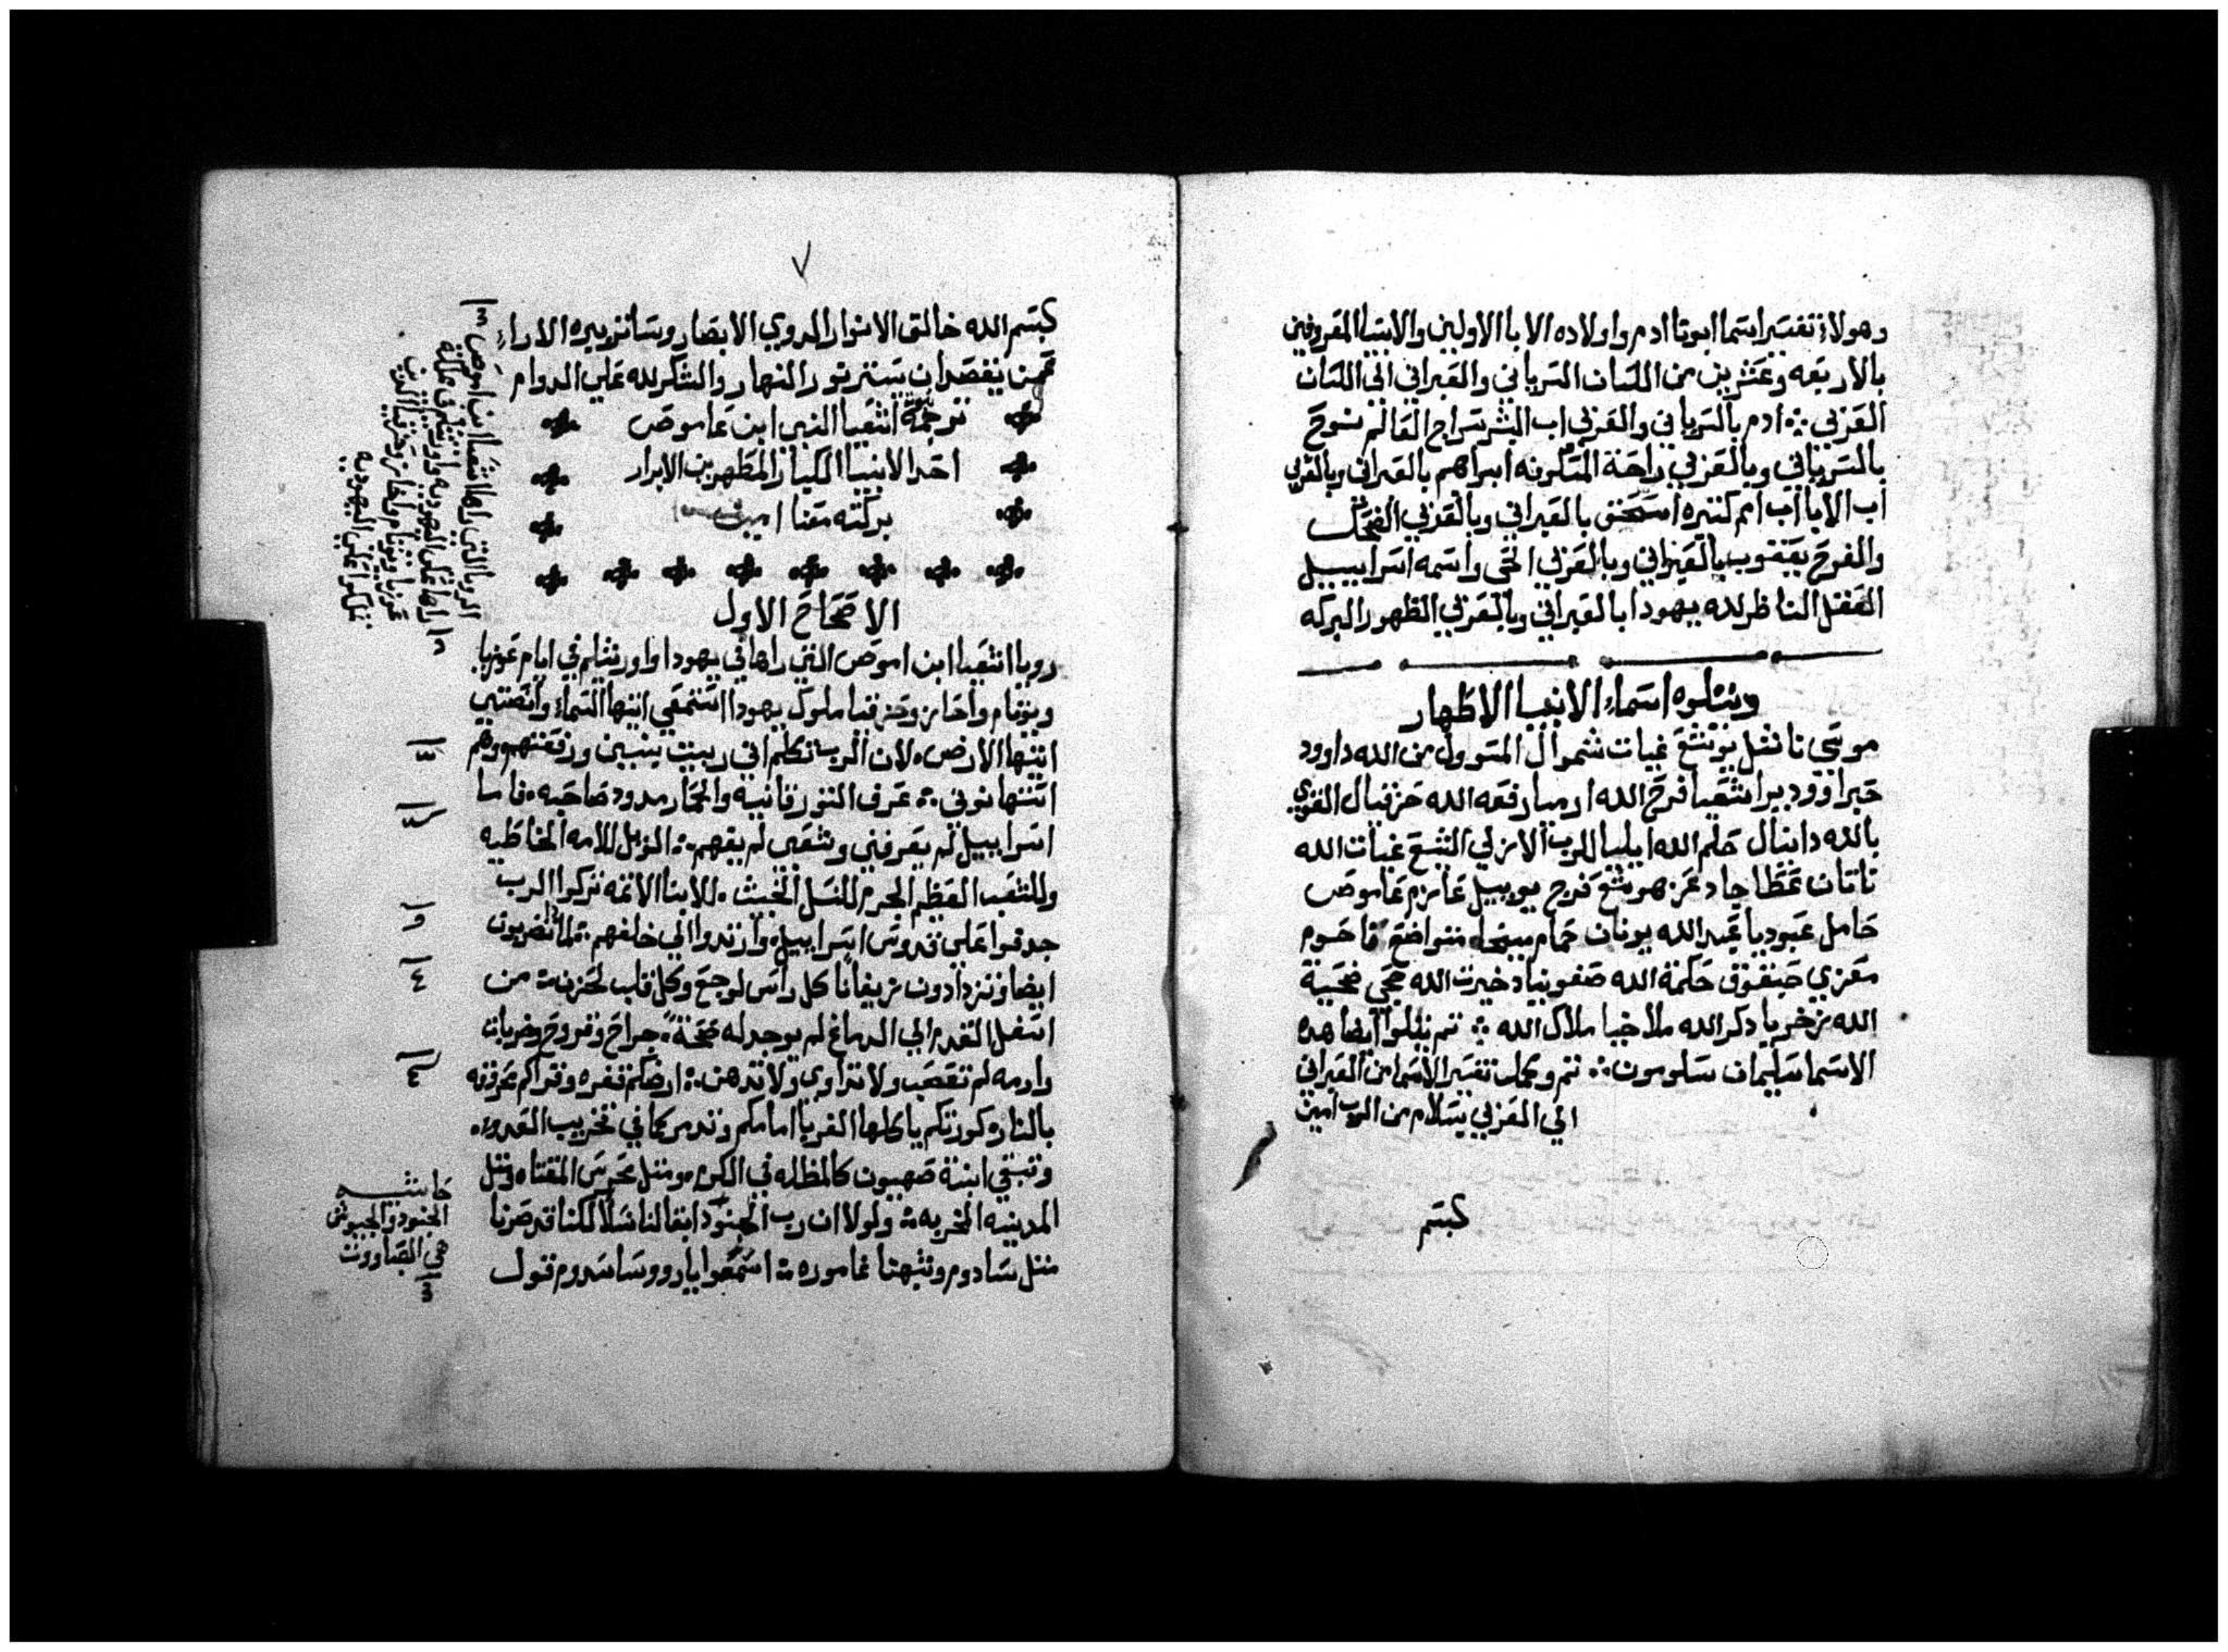 وهولاء تفسير اسما ابونا ادم واولاده الابا الاولين والانبيا المعروفين
بالاربعه وعشرين من اللسان السرياني والعبراني الي اللسان
العزبي ؞ ادم بالسرياني والعزبي اب البشر سراج العالم نوح
بالسرياني وبالعزبي راحة المسكونه ابراهيم بالعبراني وبالعزبي
اب الابا اب امم كتيره اسحق بالعبراني وبالعزبي الضحك
والفرح يعقوب بالعبراني وبالعزبي واسمه اسراييل
العقل الناظر لله يهودا بالعبراني وبالعزبي الظهور البركه
ويتلوه اسماء الانبيا الاطهار
موسي يوشع غيات شموال المسوول من الله داوود
اشعيا فرح الله ارميا رفعه الله حزقيال القوي
بالله دانيال حلم الله ايليا الرب الازلي اليشع غيات الله
ناتان عطا جاد هوشع فرج يوييل عازم عاموص
حامل عبوديا عبد الله يونان حمام ميخا متواضع ناحوم
معزي حبقوق حكمة الله صفونيا دخيرت الله حجي ضحية
الله زخريا دكر الله ملاخيا ملاك الله ؞ تم يتلوا ايضا هده
الاسما سليمان سلومون ؞ تم وكمل تفسير الاسما من العبراني
الي العزبي بسلام من الرب امين
كبسم
٧
كبسم الله خالق الانوار لدوي الابصار وساتر الاراء
فمن يقصد ان يستنير بنور النهار والشكر لله علي الدوام
نبوة ترجمة اشعيا النبي ابن عاموص
احد الانبيا الكبار المطهرين الابرار
بركته معنا امين
الاصحاح الاول
رويا اشعيا ابن اموص التي راها في يهودا واورشليم في ايام عوزيا
ويوتام واحاز وحزقيا ملوك يهودا استمعي ايتها السماء وانصتي
ايتها الارض لان الرب تكلم اني ربيت بنيين ورفعتهم وهم
عرف الثور قانيه والحمار مدود صاحبه فاما
اسراييل لم يعرفني وشعبي لم يفهم ؞ الويل للامه الخاطيه
وللشعب العظيم الجرم للنسل الخبيث للابنا الاتمه تركوا الرب
جدفوا علي قدوس اسراييل وارتدوا الي خلفهم لمادا تضربون
ايضا وتزدادون زيغانا كل راس لوجع وكل قلب لحزن من
اسفل القدم الي الدماغ لم يوجد له صحة جراح وقروح وضربات
وارمه لم تعصب ولا تداوي ولا تدهن ؞ ارضكم قفره وقراكم محروقه
بالنار كورتكم ياكلها الغربا امامكم وتدمر كما في تخريب العدو
وتبقي ابنة صهيون كالمظله في الكرم ومتل عرس المقتاه ومتل
المدينه الخربه ولولا ان رب الجنود ابقا لنا نسلا لكنا قد صرنا
متل سادوم وشبهنا غاموره اسمعوا يا رووسا سدوم قول
الرويا التي راها اشعيا ابن اموص
حاشيه
الجنود والجيوش
هي الصباووت